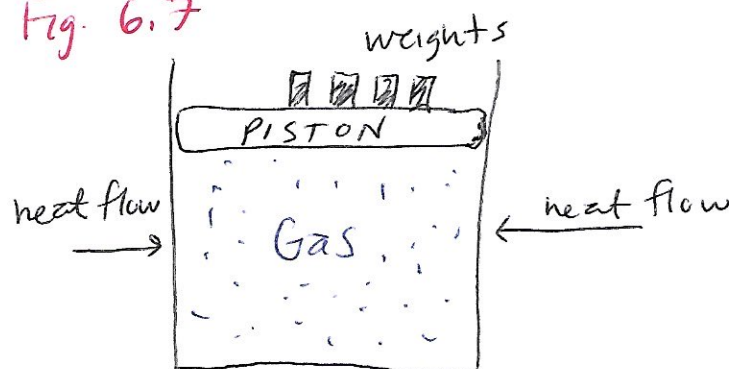 Fig. 6.7
weights
PISTON
heat flow
Gas
heat flow